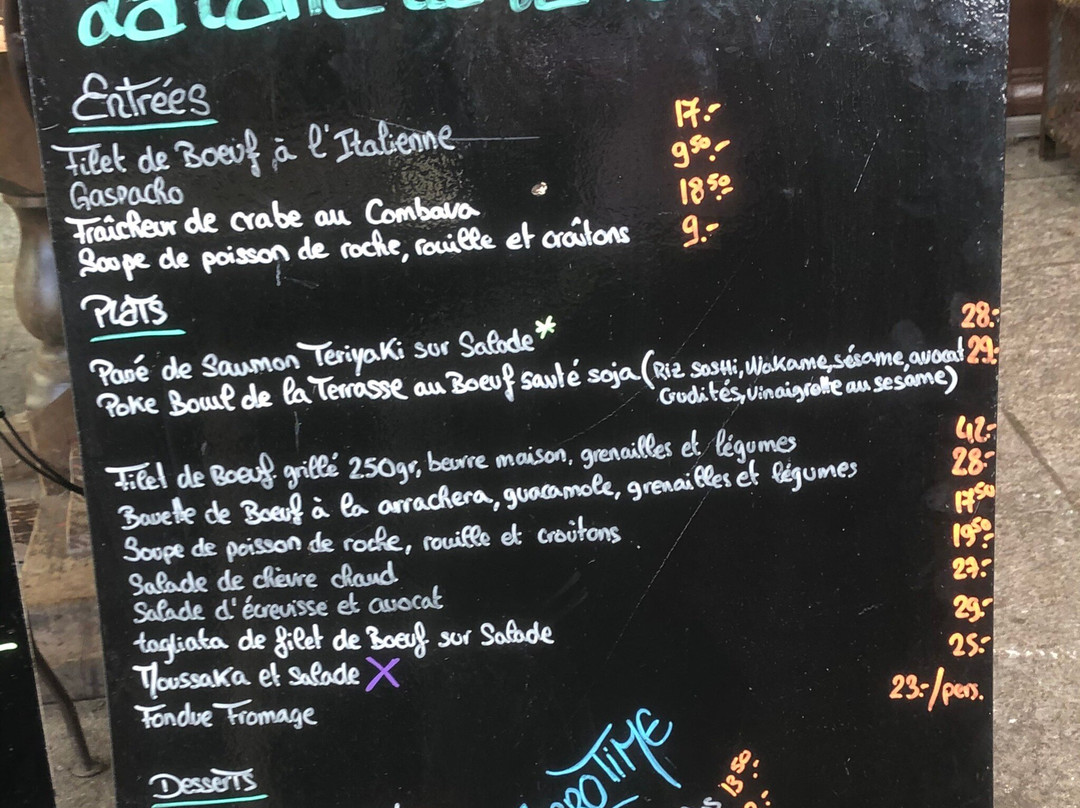 Entrées
Filet de Boeuf à l'Italienne 17.-
Gaspacho 9.50.-
Fraîcheur de crabe au Combava 18.50
Soupe de poisson de roche, rouille et croûtons 9.-
Plats
Pavé de Saumon Teriyaki sur Salade* 28.-
Poke Bowl de la Terrasse au Boeuf sauté soja (Riz sushi, Wakame, sésame, avocat 29.-
Crudités, vinaigrette au sesame)
Filet de Boeuf grillé 250gr, beurre maison, grenailles et légumes 42.-
Bavette de Boeuf à la arrachera, guacamole, grenailles et légumes 28.-
Soupe de poisson de roche, rouille et croûtons 17.50
Salade de chèvre chaud 19.50
Salade d'écrevisse et avocat 27.-
tagliata de filet de Boeuf sur Salade 29.-
Moussaka et Salade X 25.-
Fondue Fromage 23.-/pers.
Desserts
TIME
13.50.-